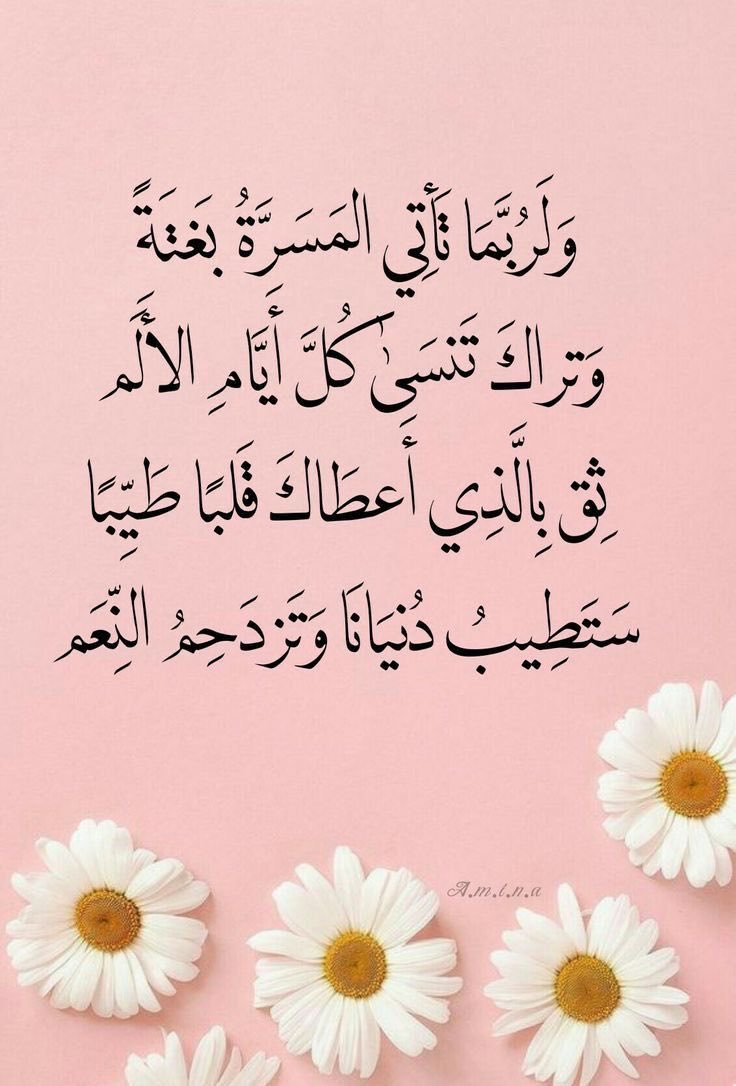 وَلَرُبَّمَا تَأتِي المَسَرَّةُ بَغتَةً
وَتراكَ تَنسَىٰ كُلَّ أَيَّامِ الأَلَم
ثِق بِالَّذِي أَعطَاكَ قَلبًا طَيِّبًا
سَتَطِيبُ دُنيَانَا وَتَزدَحِمُ النِّعَم
A.m.i.n.a